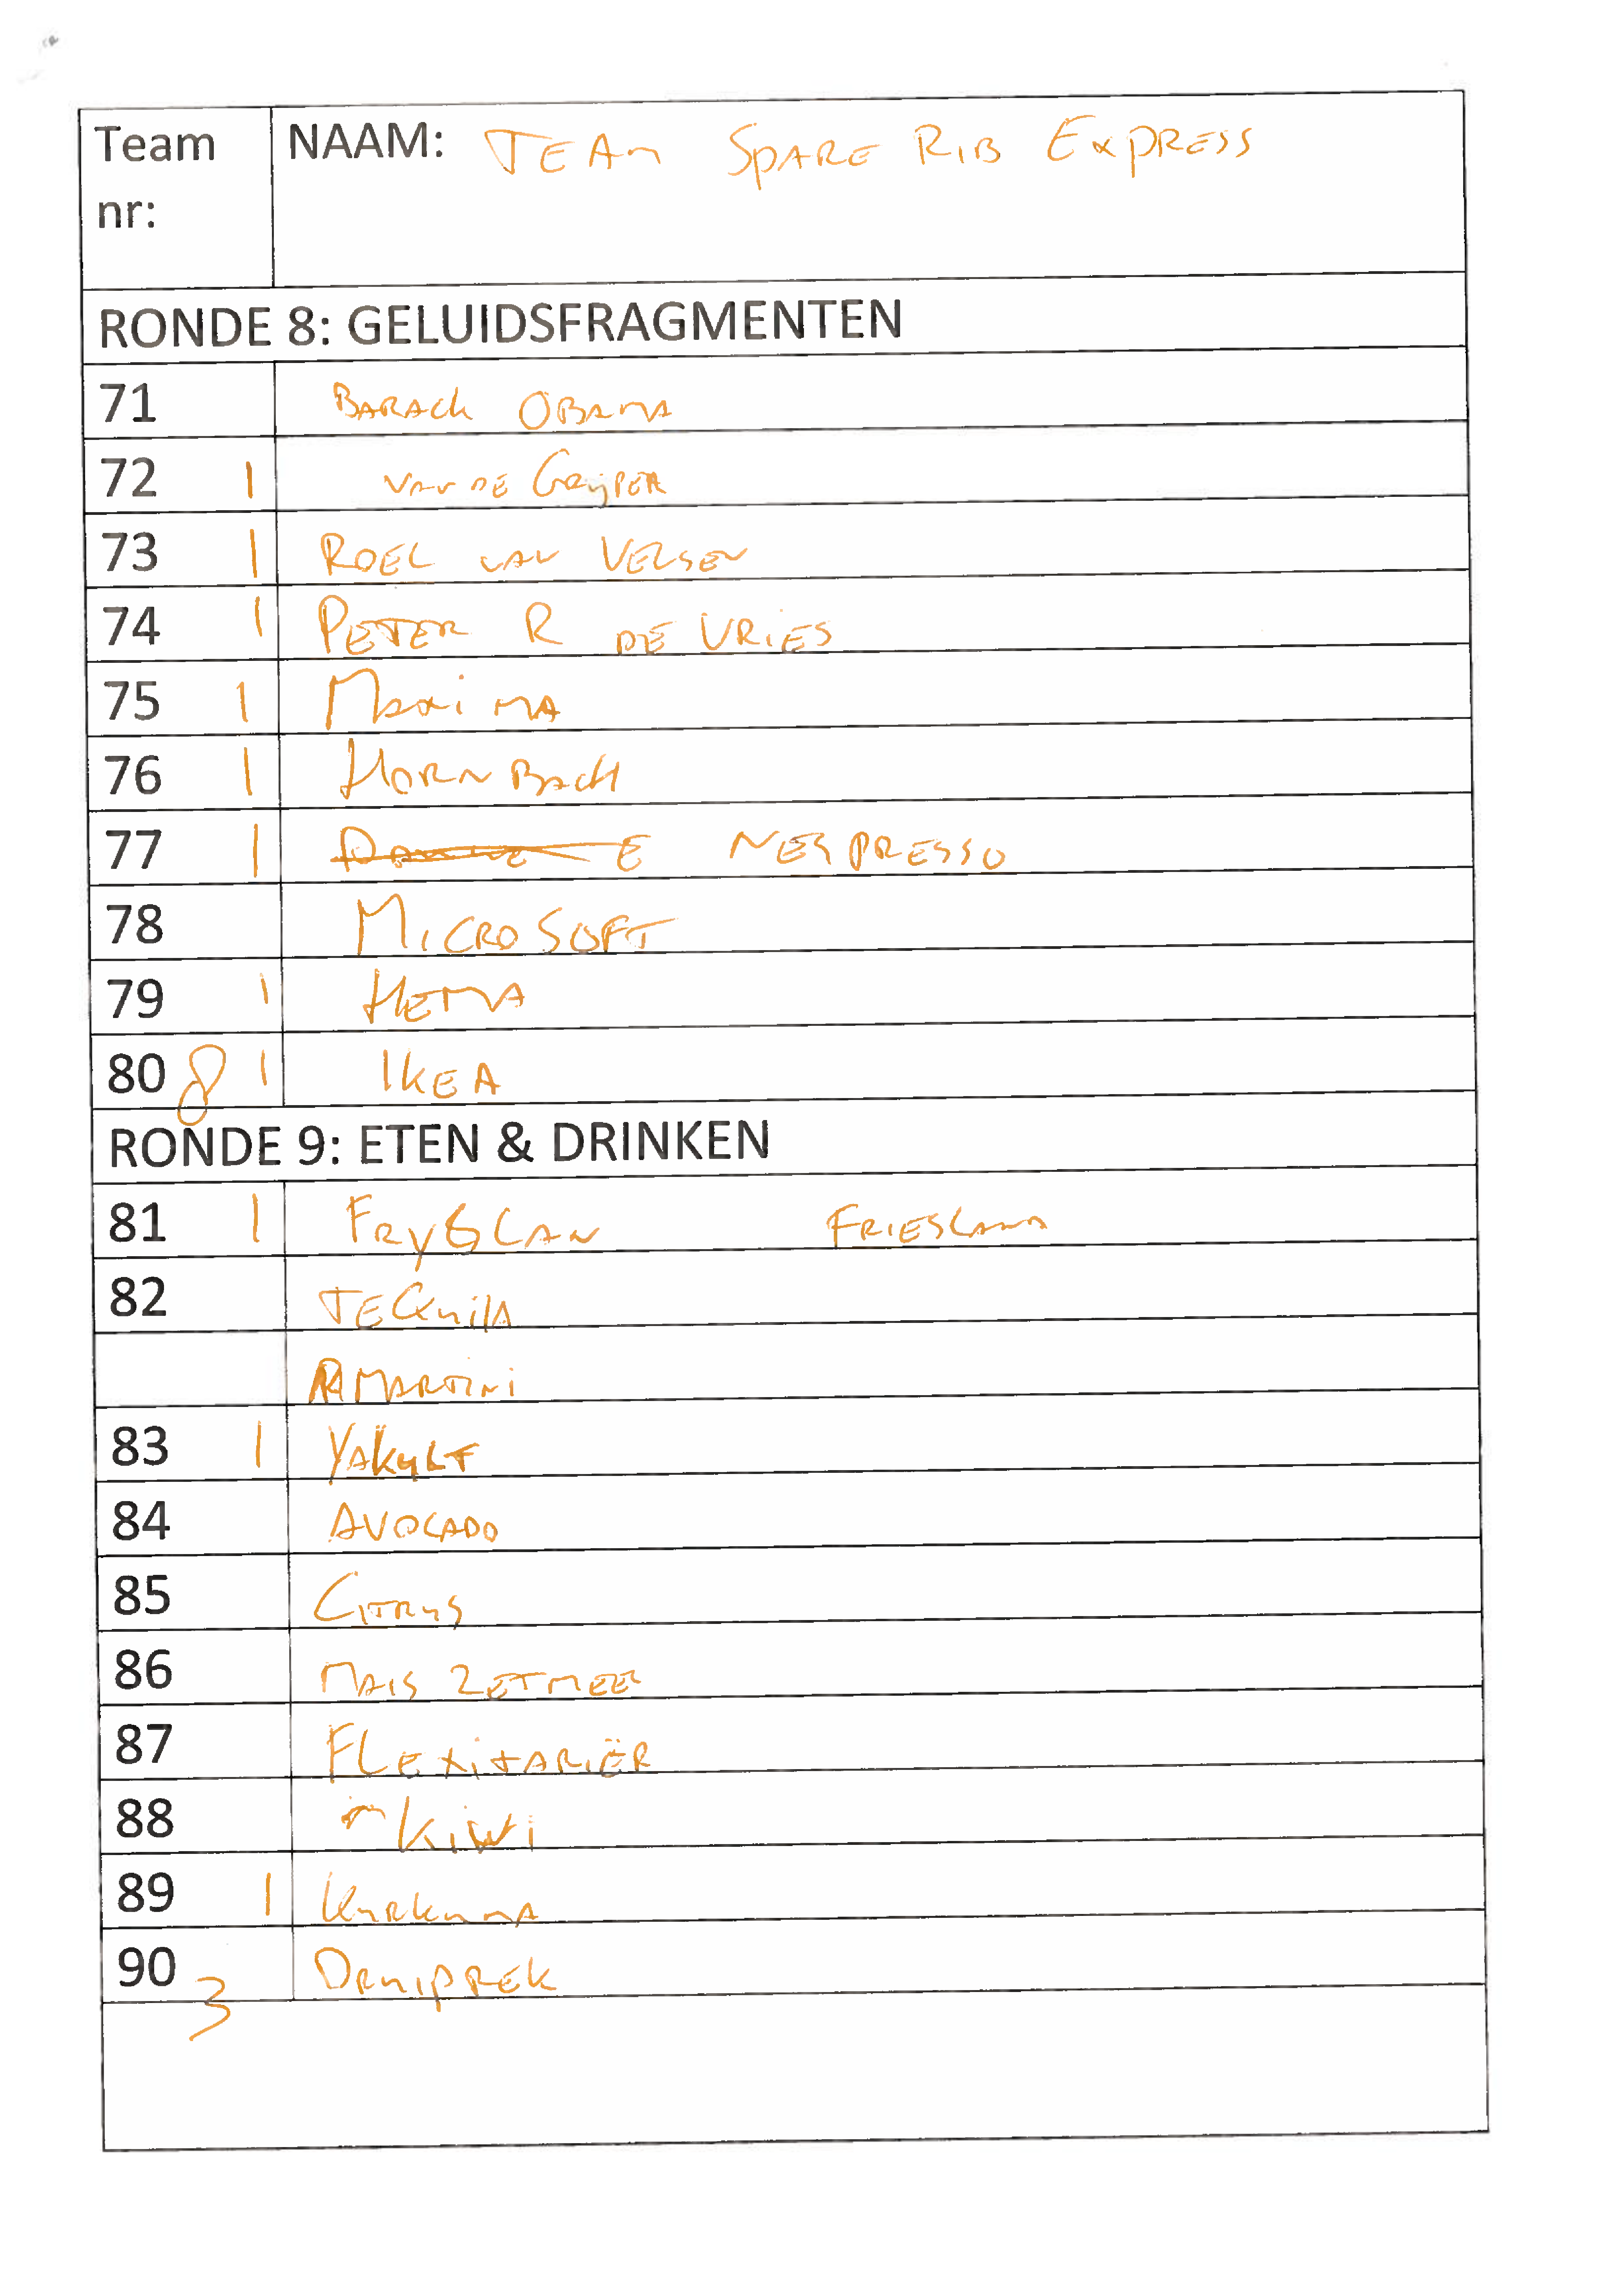 Team nr: NAAM: TEAM SPARE RIB EXPRESS
RONDE 8: GELUIDSFRAGMENTEN
71 BARACK OBAMA
72 1 VAN DE GRIJPER
73 1 ROEL VAN VELSEN
74 1 PETER R DE VRIES
75 1 MAXIMA
76 1 HORNBACH
77 1 E NESPRESSO
78 MICROSOFT
79 1 HEMA
80 8 1 IKEA
RONDE 9: ETEN & DRINKEN
81 1 FRYSLAN FRIESLAND
82 TEQUILA
MARTINI
83 1 YAKULT
84 AVOCADO
85 CITRUS
86 MAIS ZETMEEL
87 FLEXITARIËR
88 KIWI
89 1 KURKUMA
90 3 DRUIPREK